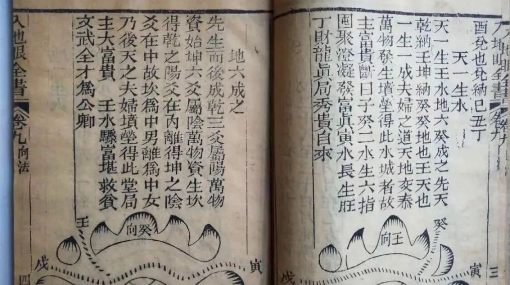 酉兌也兌納巳丑丁
天一生水
天一生壬水地六癸成之先天
乾納壬坤納癸癸地也壬天也
一生一成夫婦之道天地交泰
萬物發生墳坐得此水城者故
主富貴斷曰子癸二水生六指
聚澄凝發富眞寅水長生旺
丁財龍眞局秀貴自來
癸
壬向
寅
戌
三
地六成之
先生而後成乾三爻屬陽萬物
資始坤六爻屬陰萬物資生坎
得乾之陽爻在內離得坤之陰
爻在中故坎爲中男離爲中女
乃後天之夫婦墳坐得此堂局
主大富貴 壬水驟富堪救貧
文武全才爲公卿
壬
癸向
寅
戌
入地眼全書
卷九
向法
四